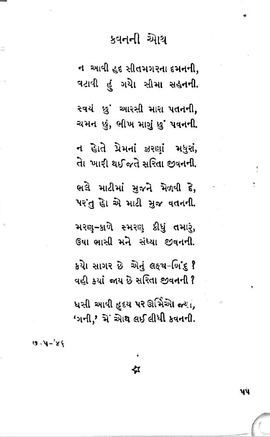 કવનની ઓથ
ન આવી હદ સીતમગરના દમનની,
વટાવી હું ગયો સીમા સહનની.
સ્વયં છું આરસી મારા પતનની,
ચમન છું, ભીખ માગું છું પવનની.
ન હોતે પ્રેમનાં ઝરણાં મધુરાં,
તો ખારી થઈ જતે સરિતા જીવનની.
ભલે માટીમાં મુજને મેળવી દે,
પરંતુ હો એ માટી મુજ વતનની.
મરણ-કાળે સ્મરણ કીધું તમારું,
ઉષા ભાસી મને સંધ્યા જીવનની.
કયો સાગર છે એનું લક્ષ્ય-બિંદુ ?
વહી કયાં જાય છે સરિતા જીવનની ?
ધસી આવી હૃદય પર ઊર્મિઓ જ્યાં,
'ગની,' મેં ઓથ લઈ લીધી કવનની.
૭-૫-'૪૬
૫૫